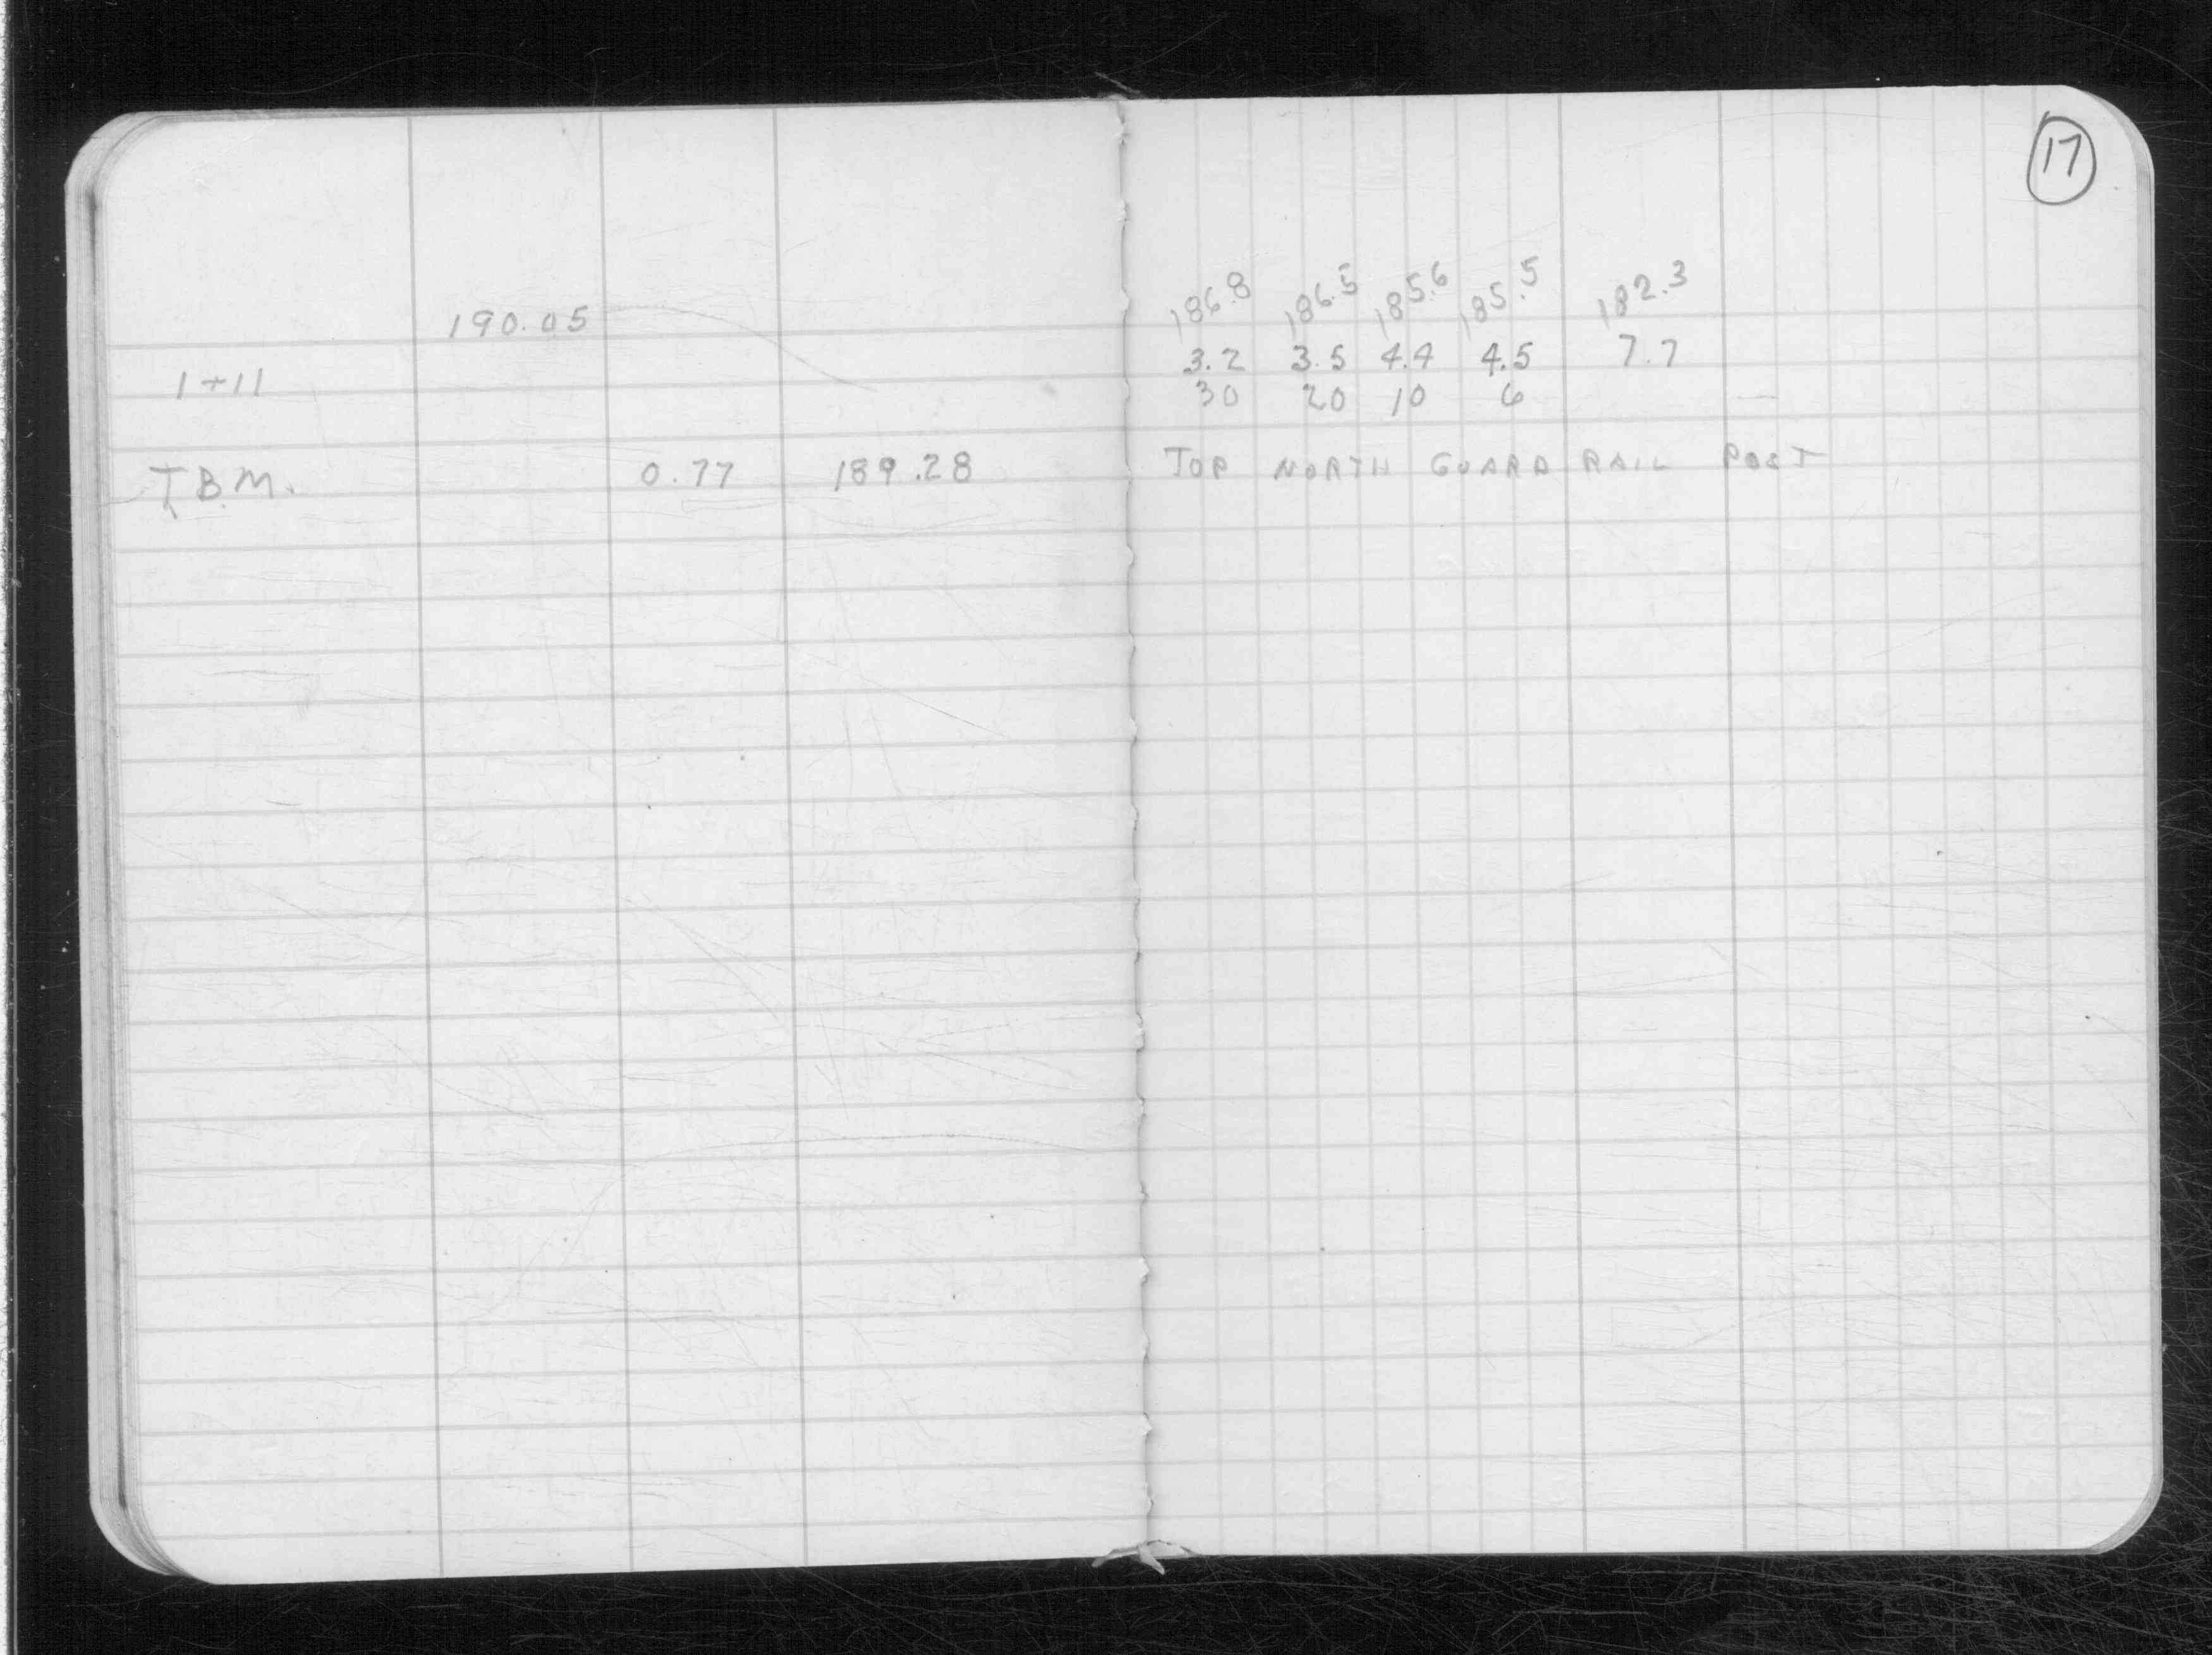 17
190.05 186.8 186.5 185.6 185.5 182.3
3.2 3.5 4.4 4.5 7.7
1+11 30 20 10 6
T.B.M. 0.77 189.28 TOP NORTH GUARD RAIL POST